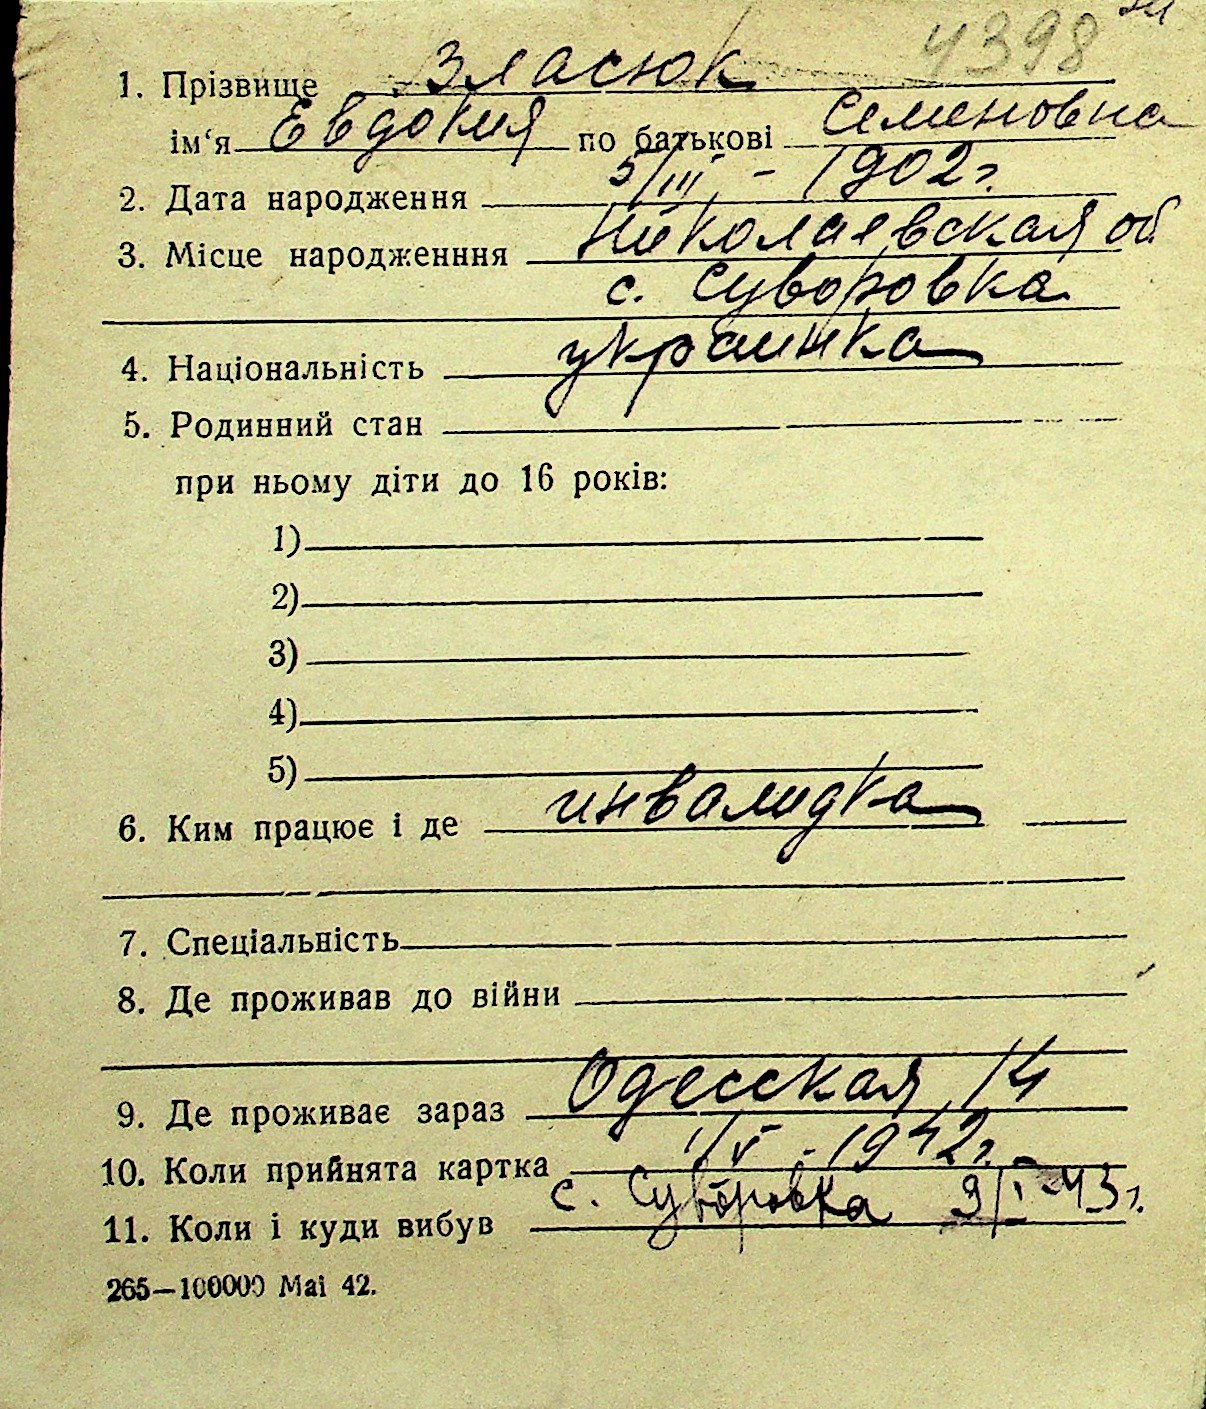 4398
1. Прізвище Зласюк
ім‘я Евдокия по батькові Семеновна
2. Дата народження 5/III - 1902г.
3. Місце народженння Николаевская об
с. Суворовка
4. Національність украинка
5. Родинний стан
при ньому діти до 16 років:
1)
2)
3)
4)
5)
6. Ким працює і де инвалидка
7. Спеціальність
8. Де проживав до війни
9. Де проживає зараз Одесская 14
10. Коли прийнята картка 1/V - 1942г.
11. Коли і куди вибув с. Суворовка 9/I-43г.
265—100000 Mai 42.